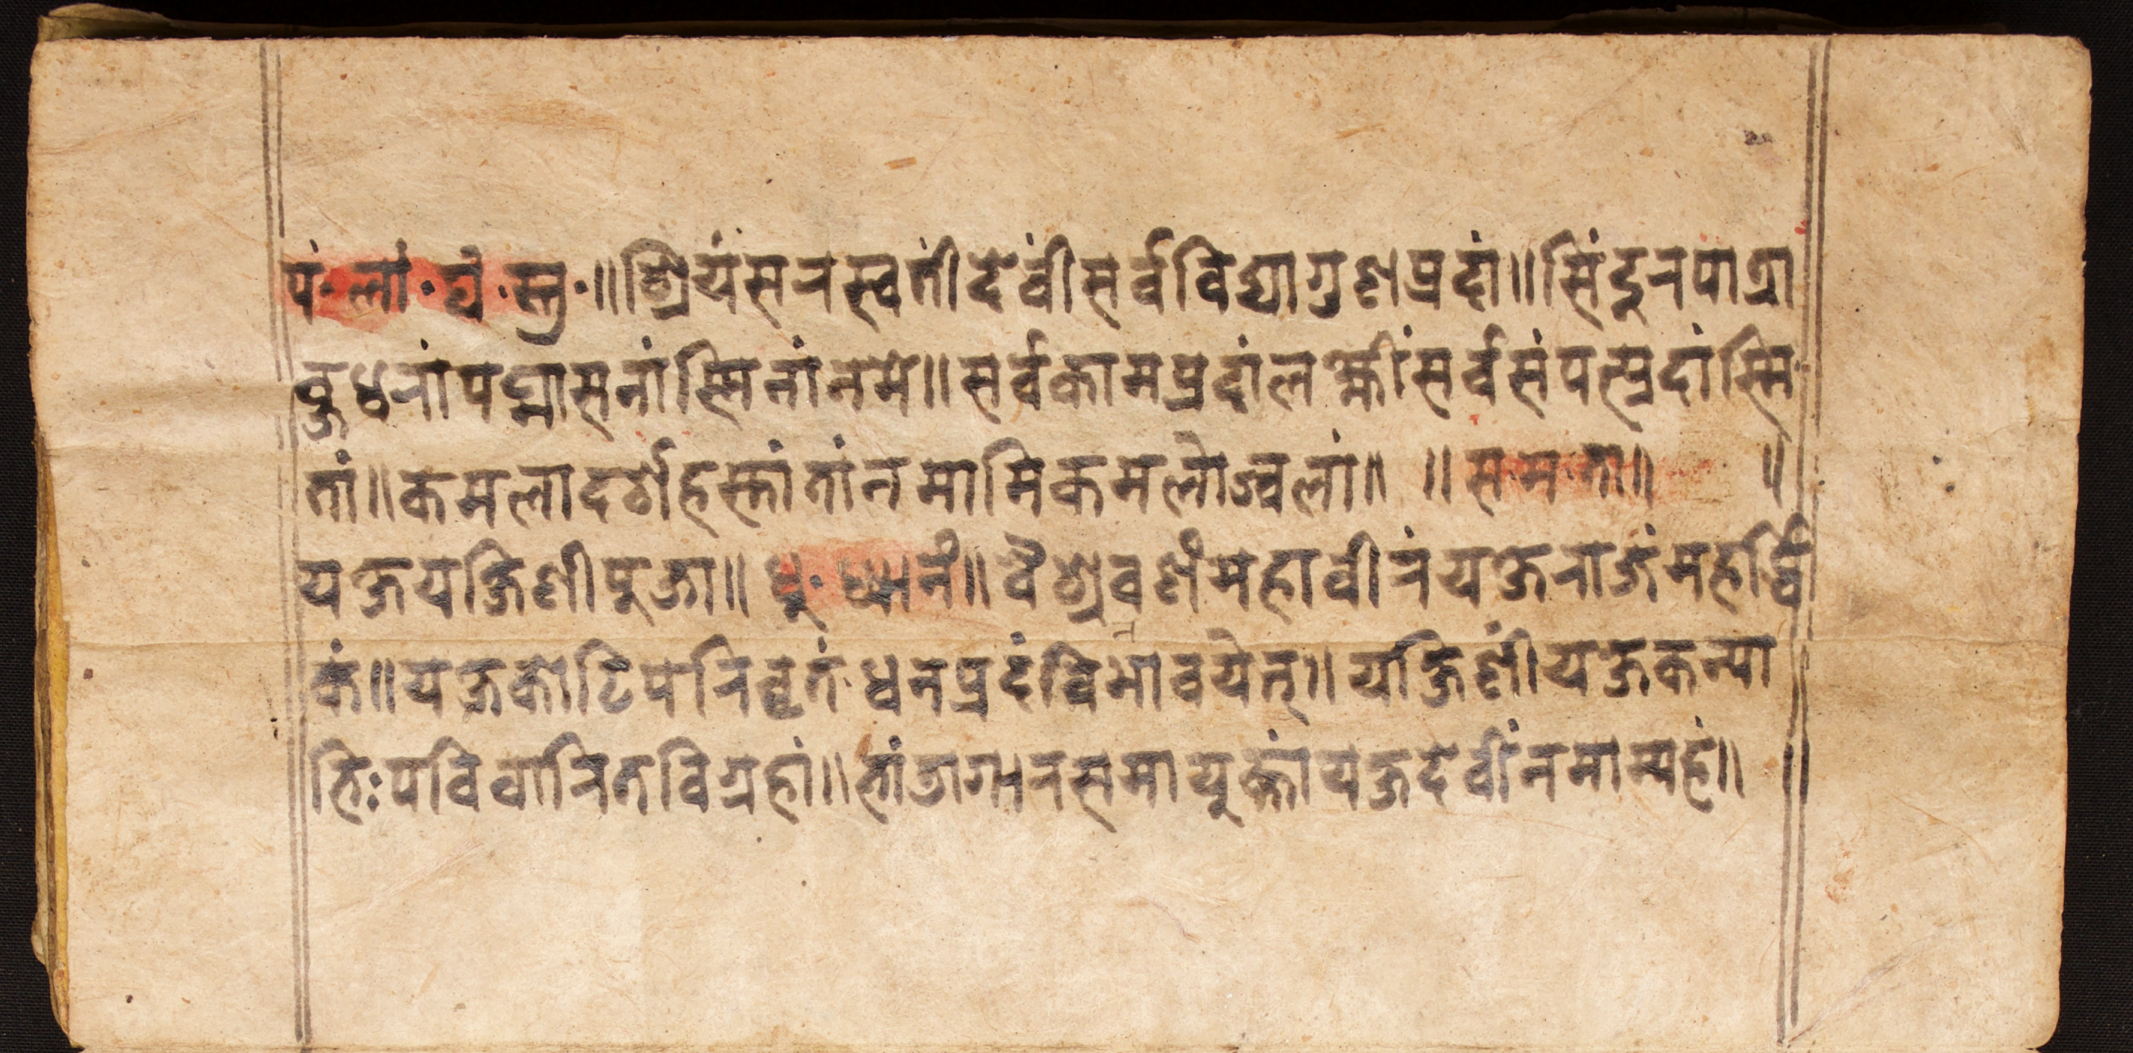 पं॰लां॰घं॰स्तु॰॥श्रियंसरस्वतीं देवींसर्वविद्यागुणप्रदां॥सिंदुरपात्रा
वुधरांपद्मासनांस्मितांनमे॥सर्वकामप्रदांलक्ष्मींसर्वसंपत्प्रदांस्मि
तां॥कमलादर्शहस्तांतांनमामिकमलोज्वलां॥ ॥स॰म॰ता॥ ॥
यक्षयक्षिणीपुजा॥धु॰ध्यानं॥वैश्रवणंमहावीरंयक्षराजंमहर्द्धि
कं॥यक्षकोटिपरिवृतंधनप्रदंविभावयेत्॥यक्षिणींयक्षकन्या
भिःपविवारितविग्रहां॥ समायुक्तांयक्षदेवींनमाम्यहं॥ ॥